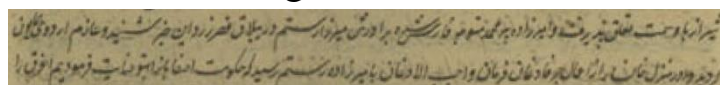 شیراز باو سمت تعلق پذیرفت و امیرزاده پیر محمد متوجه فارس شده برادرش میرزا رستم در ییلاق قصر زرد این خبر شنید و عازم اردوی همایون
و در منزل خان را از حال بر فاد نفاق فرمان واجب الاذعان بامیرزاده رستم رسید که حکومت اصفهان بتو عنایت فرمودیم اغرق را